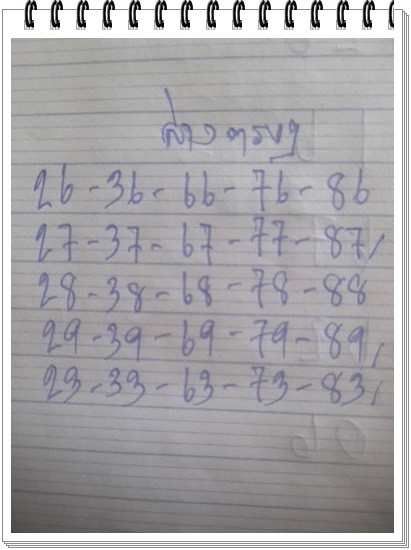 ล่าง ตรงๆ
26-36-66-76-86
27-37-67-77-87/
28-38-68-78-88
29-39-69-79-89/
23-33-63-73-83/